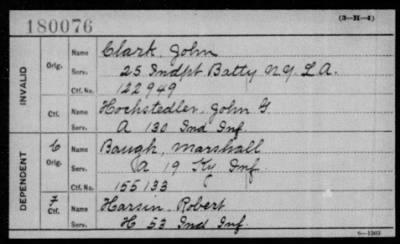 180076
(3-H-4)
INVALID
Orig.
Name Clark, John
Serv. 25 Indpt Batty N.Y. L.A.
Ctf. No. 122949
Ctf.
Name Hochstedler, John G
Serv. A 130 Ind Inf.
DEPENDENT
6
Orig.
Name Baugh, Marshall
Serv. A 19 Ky Inf.
Ctf. No. 155133
7
Ctf.
Name Harsin, Robert
Serv. H 53 Ind Inf.